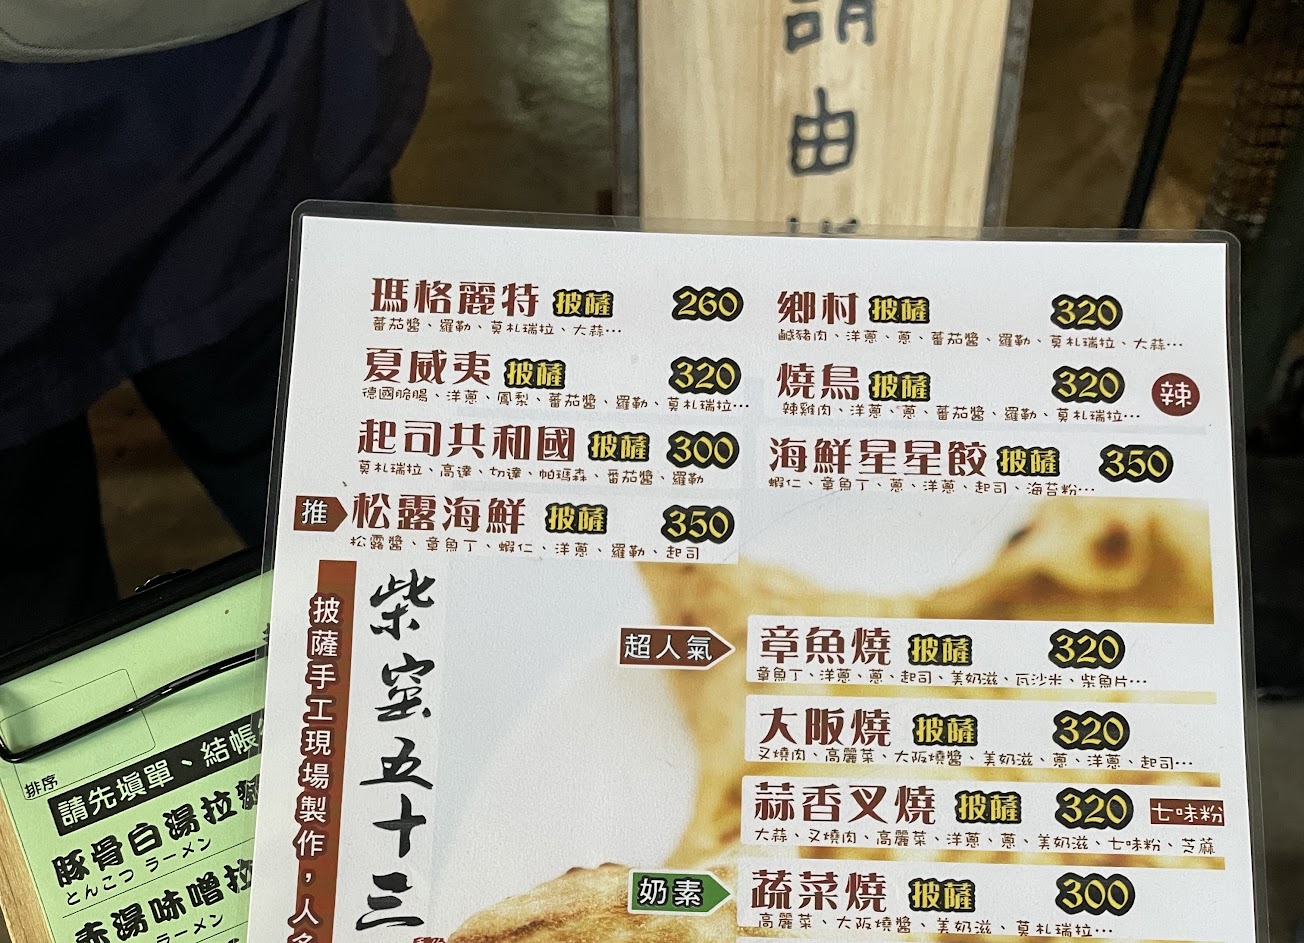 請由
瑪格麗特 披薩 260
蕃茄醬、羅勒、莫札瑞拉、大蒜…
夏威夷 披薩 320
德國脆腸、洋蔥、鳳梨、蕃茄醬、羅勒、莫札瑞拉…
起司共和國 披薩 300
莫札瑞拉、高達、切達、帕瑪森、蕃茄醬、羅勒
推 松露海鮮 披薩 350
松露醬、章魚丁、蝦仁、洋蔥、羅勒、起司
鄉村 披薩 320
鹹豬肉、洋蔥、蔥、蕃茄醬、羅勒、莫札瑞拉、大蒜…
燒鳥 披薩 320 辣
辣雞肉、洋蔥、蔥、蕃茄醬、羅勒、莫札瑞拉…
海鮮星星餃 披薩 350
蝦仁、章魚丁、蔥、洋蔥、起司、海苔粉…
超人氣 章魚燒 披薩 320
章魚丁、洋蔥、蔥、起司、美奶滋、瓦沙米、柴魚片…
大阪燒 披薩 320
叉燒肉、高麗菜、大阪燒醬、美奶滋、蔥、洋蔥、起司…
蒜香叉燒 披薩 320 七味粉
大蒜、叉燒肉、高麗菜、洋蔥、蔥、美奶滋、七味粉、芝麻
奶素 蔬菜燒 披薩 300
高麗菜、大阪燒醬、美奶滋、莫札瑞拉…
柴窯五十三
披薩手工現場製作，人多
排序
請先填單、結帳
豚骨白湯拉
とんこつ ラーメン
赤湯味噌拉
ラーメン